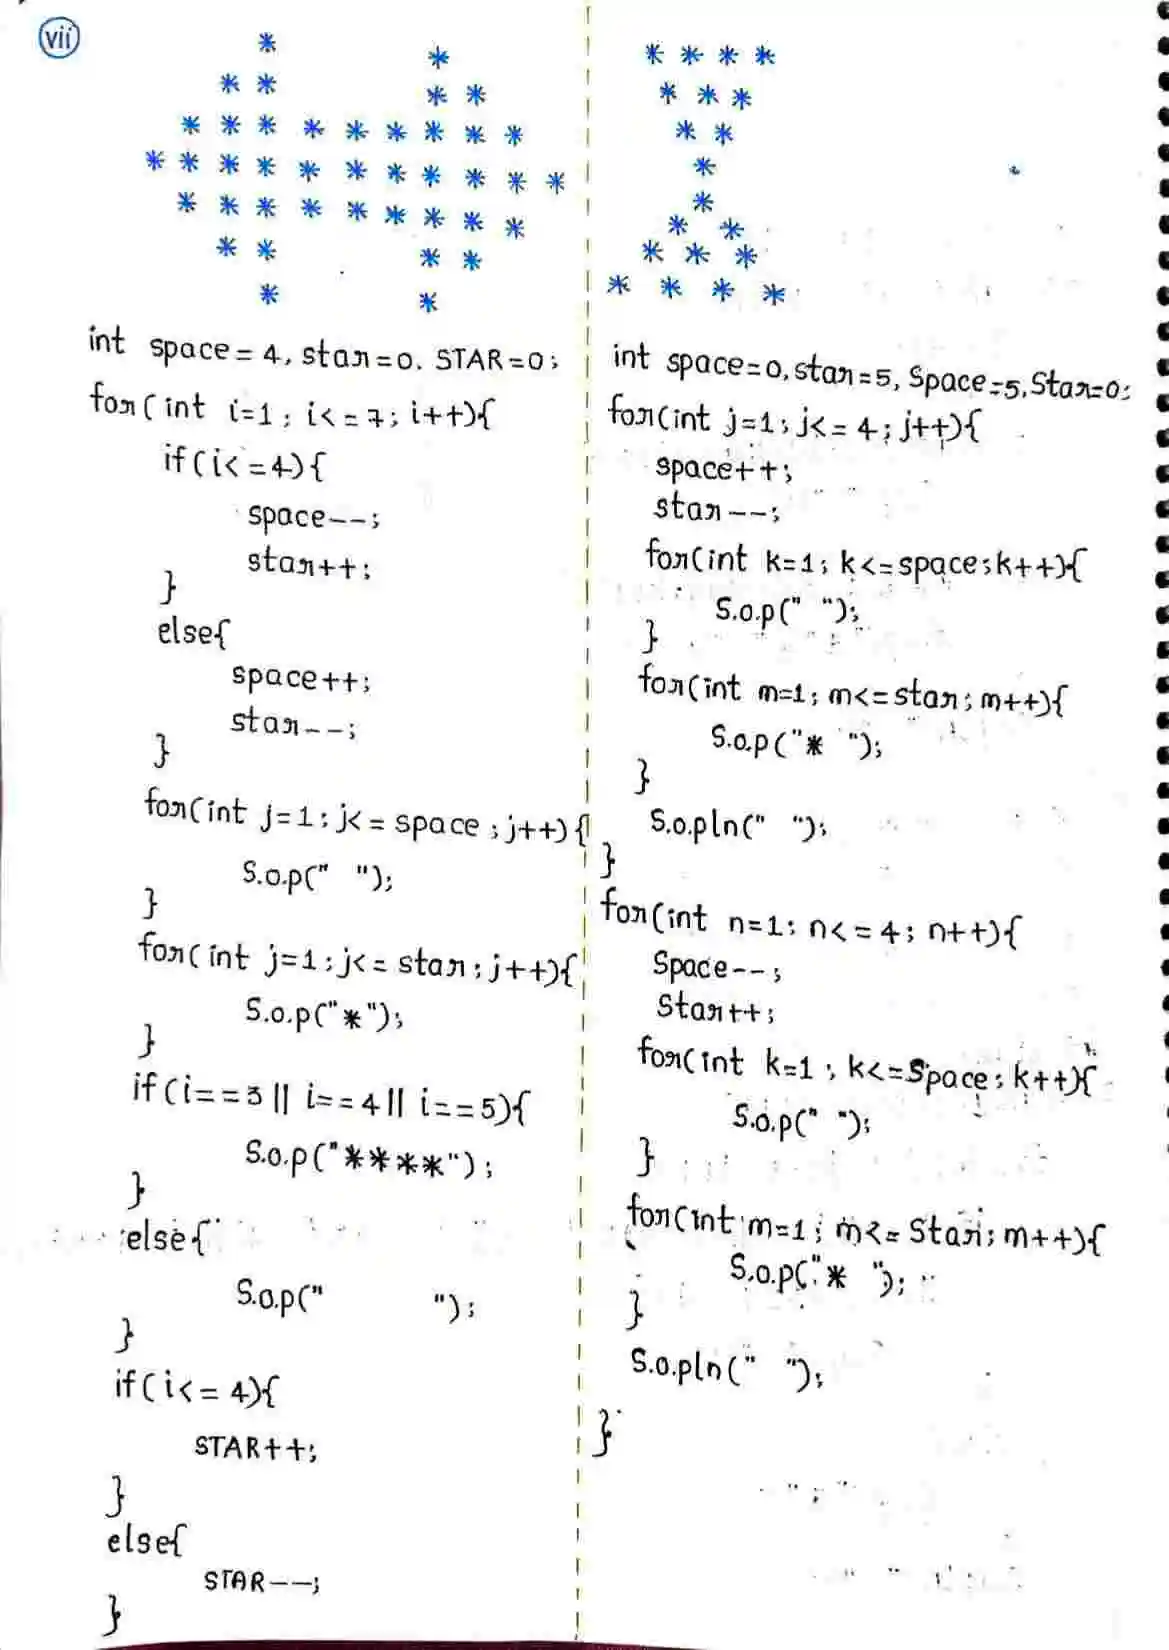 vii
*
* *
* * * * * * * * *
* * * * * * * * * * *
* * * * * * * * *
* *
*
*
* *
* *
*
int space = 4, star=0. STAR=0;
for( int i=1; i<=7; i++){
if(i<=4){
space--;
star++;
}
else{
space++;
star--;
}
for(int j=1; j<= space ; j++){
S.o.p(" ");
}
for( int j=1; j<= star; j++){
S.o.p("*");
}
if(i==3 || i==4 || i==5){
S.o.p("****");
}
else{
S.o.p(" ");
}
if(i<=4){
STAR++;
}
else{
STAR--;
}
* * * *
* * *
* *
*
*
* *
* * *
* * * *
int space=0, star=5, Space=5, Star=0;
for(int j=1; j<=4; j++){
space++;
star--;
for(int k=1; k<=space; k++){
S.o.p(" ");
}
for(int m=1; m<=star; m++){
S.o.p("* ");
}
S.o.pln(" ");
}
for(int n=1; n<=4; n++){
Space--;
Star++;
for(int k=1; k<=Space; k++){
S.o.p(" ");
}
for(int m=1; m<= Star; m++){
S.o.p("* ");
}
S.o.pln(" ");
}